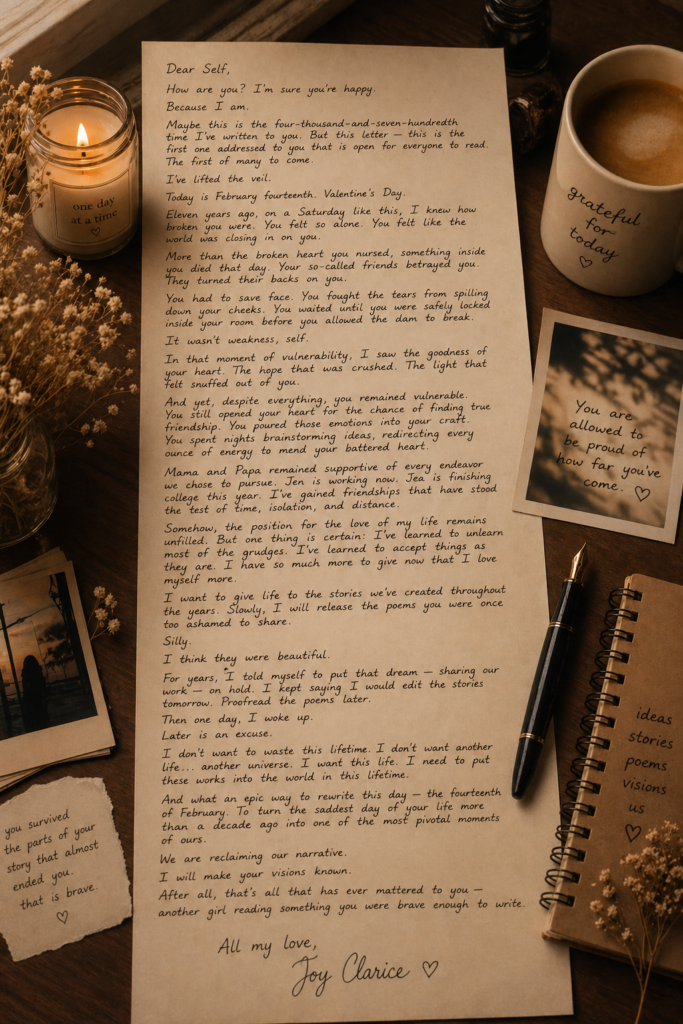 Dear Self,
How are you? I'm sure you're happy.
Because I am.
Maybe this is the four-thousand-and-seven-hundredth
time I've written to you. But this letter — this is the
first one addressed to you that is open for everyone to read.
The first of many to come.
I've lifted the veil.
Today is February fourteenth. Valentine's Day.
Eleven years ago, on a Saturday like this, I knew how
broken you were. You felt so alone. You felt like the
world was closing in on you.
More than the broken heart you nursed, something inside
you died that day. Your so-called friends betrayed you.
They turned their backs on you.
You had to save face. You fought the tears from spilling
down your cheeks. You waited until you were safely locked
inside your room before you allowed the dam to break.
It wasn't weakness, self.
In that moment of vulnerability, I saw the goodness of
your heart. The hope that was crushed. The light that
felt snuffed out of you.
And yet, despite everything, you remained vulnerable.
You still opened your heart for the chance of finding true
friendship. You poured those emotions into your craft.
You spent nights brainstorming ideas, redirecting every
ounce of energy to mend your battered heart.
Mama and Papa remained supportive of every endeavor
we chose to pursue. Jen is working now. Jea is finishing
college this year. I've gained friendships that have stood
the test of time, isolation, and distance.
Somehow, the position for the love of my life remains
unfilled. But one thing is certain: I've learned to unlearn
most of the grudges. I've learned to accept things as
they are. I have so much more to give now that I love
myself more.
I want to give life to the stories we've created throughout
the years. Slowly, I will release the poems you were once
too ashamed to share.
Silly.
I think they were beautiful.
For years, I told myself to put that dream — sharing our
work — on hold. I kept saying I would edit the stories
tomorrow. Proofread the poems later.
Then one day, I woke up.
Later is an excuse.
I don't want to waste this lifetime. I don't want another
life... another universe. I want this life. I need to put
these works into the world in this lifetime.
And what an epic way to rewrite this day — the fourteenth
of February. To turn the saddest day of your life more
than a decade ago into one of the most pivotal moments
of ours.
We are reclaiming our narrative.
I will make your visions known.
After all, that's all that has ever mattered to you —
another girl reading something you were brave enough to write.
All my love,
Joy Clarice ♡
one day
at a time
♡
grateful
for
today
♡
You are
allowed to
be proud of
how far you've
come. ♡
ideas
stories
poems
visions
us
♡
you survived
the parts of your
story that almost
ended you.
that is brave.
♡